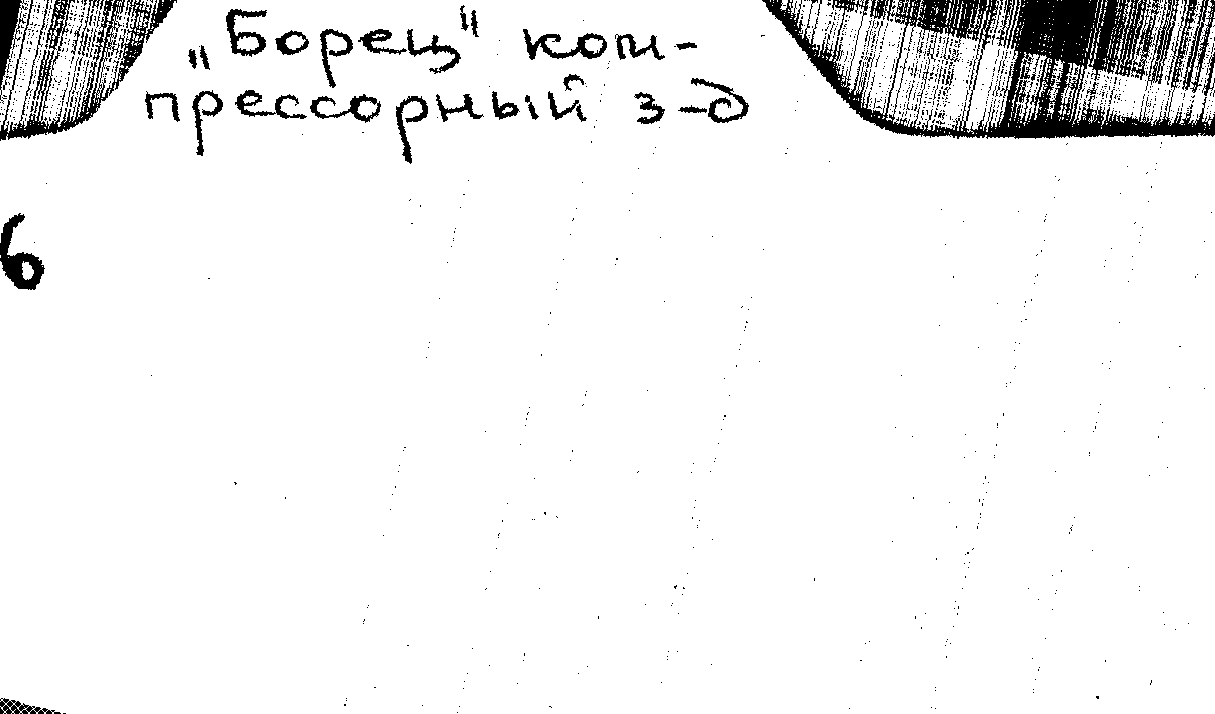 „Борец" ком-
прессорный з-д
6